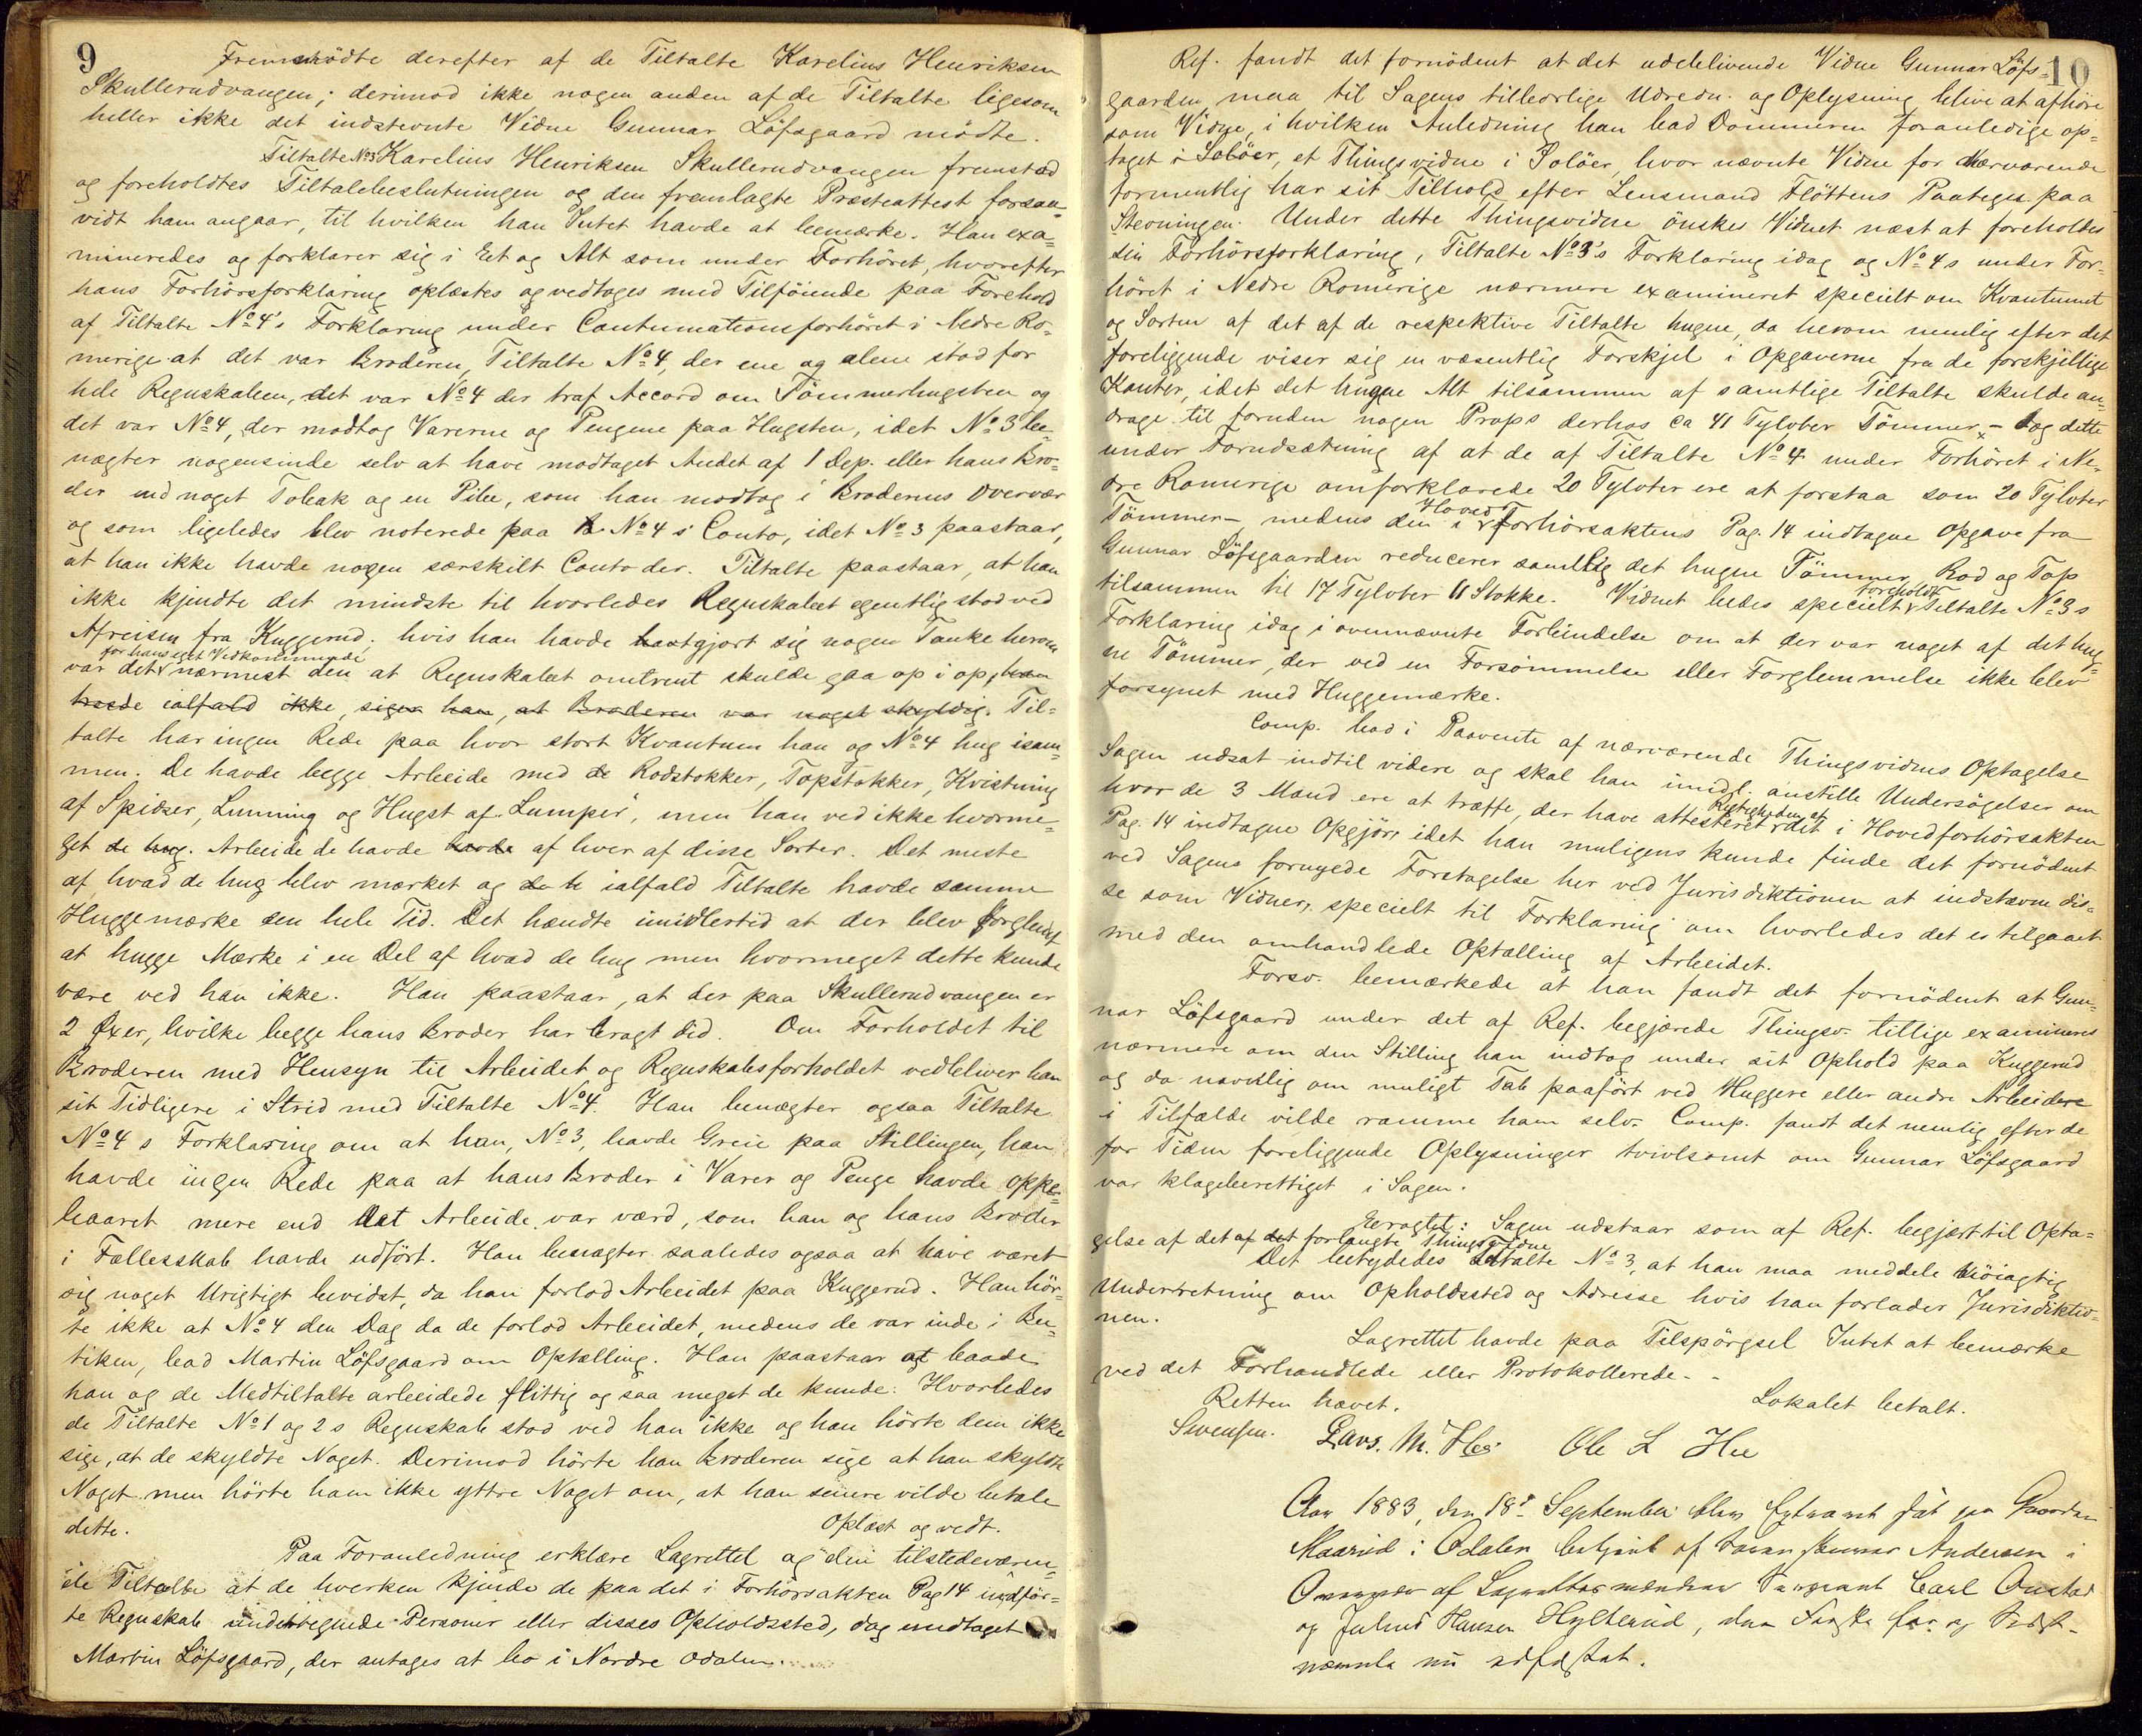 9
Fremmödte derefter af de Tiltalte Karelius Henriksen
Skullerudvangen; derimod ikke nogen anden af de Tiltalte ligesom
heller ikke det indstevnte Vidne Gunnar Löfsgaard mödte.
Tiltalte No3 Karelius Henriksen Skullerudvangen fremstod
og foreholdtes Tiltalebeslutningen og den fremlagte Præsteattest forsaa-
vidt ham angaar, til hvilken han Intet havde at bemærke. Han exa=
mineredes og forklarer sig i Et og Alt som under Forhöret, hvorefter
hans Forhörsforklaring oplæstes og vedtoges med Tilföiende paa Forehold
af Tiltalte No 4's Forklaring under Contumationsforhöret i Nedre Ro=
merige at det var Broderen, Tiltalte No 4, der ene og alene stod for
hele Regnskaben, det var No 4 der traf Accord om Tömmerhugsten og
det var No 4, der modtog Varerne og Pengene paa Hugsten, idet No 3 be=
nægter nogensinde selv at have modtaget Andet af 1 Dep. eller hans Bro=
der end noget Tobak og en Pibe, som han modtog i Broderens Overvær
og som ligeledes blev noterede paa No 4 s Conto, idet No 3 paastaar,
at han ikke havde nogen særskilt Conto der. Tiltalte paastaar, at han
ikke kjendte det mindste til hvorledes Regnskabet egentlig stod ved
Afreisen fra Kuggerud; hvis han havde gjort sig nogen Tanke herom
for hans eget Vedkommende
var det nærmest den at Regnskabet omtrent skulde gaa op i op, han
havde ialfald ikke, siger han, at Broderen var noget skyldig. Til=
talte har ingen Rede paa hvor stort Kvantum han og No 4 hug isam=
men. De havde begge Arbeide med de Rodstokker, Topstokker, Kvistning
af Spidser, Lunning og Hugst af "Lumper", men han ved ikke hvorme=
get de hug. Arbeide de havde havde af hver af disse Sorter. Det meste
af hvad de hug blev mærket og ialfald Tiltalte havde samme
Huggemærke den hele Tid. Det hændte imidlertid at der blev forglemt
at hugge Mærke i en Del af hvad de hug men hvormeget dette kunde
være ved han ikke. Han paastaar, at der paa Skullerudvangen er
2 Øxer, hvilke begge hans Broder har bragt did. Om Forholdet til
Broderen med Hensyn til Arbeidet og Regnskabsforholdet vedbliver han
sit Tidligere i Strid med Tiltalte No 4. Han benægter ogsaa Tiltalte
No 4 s Forklaring om at han, No 3, havde Greie paa Stillingen, han
havde ingen Rede paa at hans Broder i Varer og Penge havde oppe=
baaret mere end det Arbeide var værd, som han og hans Broder
i Fællesskab havde udfört. Han benægter saaledes ogsaa at have været
sig noget Urigtigt bevidst, da han forlod Arbeidet paa Kuggerud. Han hör=
te ikke at No 4 den Dag da de forlod Arbeidet, medens de var inde i Bu=
tiken, bad Martin Löfsgaard om Optælling. Han paastaar at baade
han og de Medtiltalte arbeidede flittig og saa meget de kunde. Hvorledes
de Tiltalte No 1 og 2 s Regnskab stod ved han ikke og han hörte dem ikke
sige, at de skyldte Noget. Derimod hörte han Broderen sige at han skyldte
Noget men hörte ham ikke yttre Noget om, at han senere vilde betale
dette.
Oplæst og vedt.
Paa Foranledning erklære Lagrettet og den tilstedeværen=
de Tiltalte at de hverken kjende de paa det i Forhörsakten Pag 14 indför=
te Regnskab undertegnede Personer eller disses Opholdssted, dog undtaget
Martin Löfsgaard, der antages at bo i Nordre Odalen.
10
Ref. fandt det fornödent at det udeblivende Vidne Gunnar Löfs=
gaarden maa til Sagens tilbörlige Udredn. og Oplysning blive at afhöre
som Vidne, i hvilken Anledning han bad Dommeren foranledige op=
taget i Solöer, et Thingsvidne i Solöer, hvor nævnte Vidne for Nærværende
formentlig har sit Tilhold efter Lensmand Flöttens Paategn. paa
Stevningen. Under dette Thingsvidne önskes Vidnet næst at foreholdes
sin Forhörsforklaring, Tiltalte No 3's Forklaring idag og No 4s under For=
höret i Nedre Romerige nærmere examineret specielt om Kvantumet
og Sorten af det af de respektive Tiltalte hugne, da herom nemlig efter det
foreliggende viser sig en væsentlig Forskjel i Opgaverne fra de forskjellige
Kanter, idet det hugne Alt tilsammen af samtlige Tiltalte skulde an=
drage til foruden nogen Props derhos ca 41 Tylvter Tömmer, - dog dette
under Forudsætning af at de af Tiltalte No 4 under Forhöret i Ne=
dre Romerige omforklarede 20 Tylvter ere at forstaa som 20 Tylvter
Hoved
Tömmer - medens den i Forhörsaktens Pag. 14 indtagne Opgave fra
Gunnar Löfsgaarden reducerer samtlig det hugne Tömmer, Rod og Top
tilsammen til 17 Tylvter 11 Stokke. Vidnet bedes specielt
foreholdt
Tiltalte No 3 s
Forklaring idag i ovennævnte Forbindelse om at der var noget af det hug=
ne Tömmer, der ved en Forsömmelse eller Forglemmelse ikke blev
forsynet med Huggemærke.
Comp. bad i Paavente af nærværende Thingsvidnes Optagelse
Sagen udsat indtil videre og skal han imidl. anstille Undersögelser om
hvor de 3 Mænd ere at træffe, der have attesteret
Rigtigheden af
det i Hovedforhörsakten
Pag. 14 indtagne Opgjör, idet han muligens kunde finde det fornödent
ved Sagens fornyede Foretagelse her ved Jurisdiktionen at indstævne dis=
se som Vidner, specielt til Forklaring om hvorledes det er tilgaaet
med den omhandlede Optælling af Arbeidet.
Forsv. bemærkede at han fandt det fornödent at Gun=
nar Löfsgaard under det af Ref. begjærede Thingsv. tillige examineres
nærmere om den Stilling han indtog under sit Ophold paa Kuggerud
og da navnlig om muligt Tab paafört ved Huggere eller andre Arbeidere
i Tilfælde vilde ramme ham selv. Comp. fandt det nemlig efter de
for Tiden foreliggende Oplysninger tvivlsomt om Gunnar Löfsgaard
var klageberettiget i Sagen.
Eragtet: Sagen udstaar som af Ref. begjært til Opta=
gelse af det af det forlangte Thingsvidne
Det betydedes Tiltalte No 3, at han maa meddele Nöiagtig
Underretning om Opholdssted og Adresse hvis han forlader Jurisdiktio=
nen.
Lagrettet havde paa Tilspörgsel Intet at bemærke
ved det Forhandlede eller Protokollerede. -
Retten hævet.
Lokalet betalt.
Svensen. Lars. M. Hee Ole L Hee
Aar 1883, den 18de September blev Extraret sat paa Gaarden
Maarud i Odalen betjent af Andersen i
Overvær af Lagrettesmændene Sergeant Carl Onstad
og Julius Hansen Hylterud,